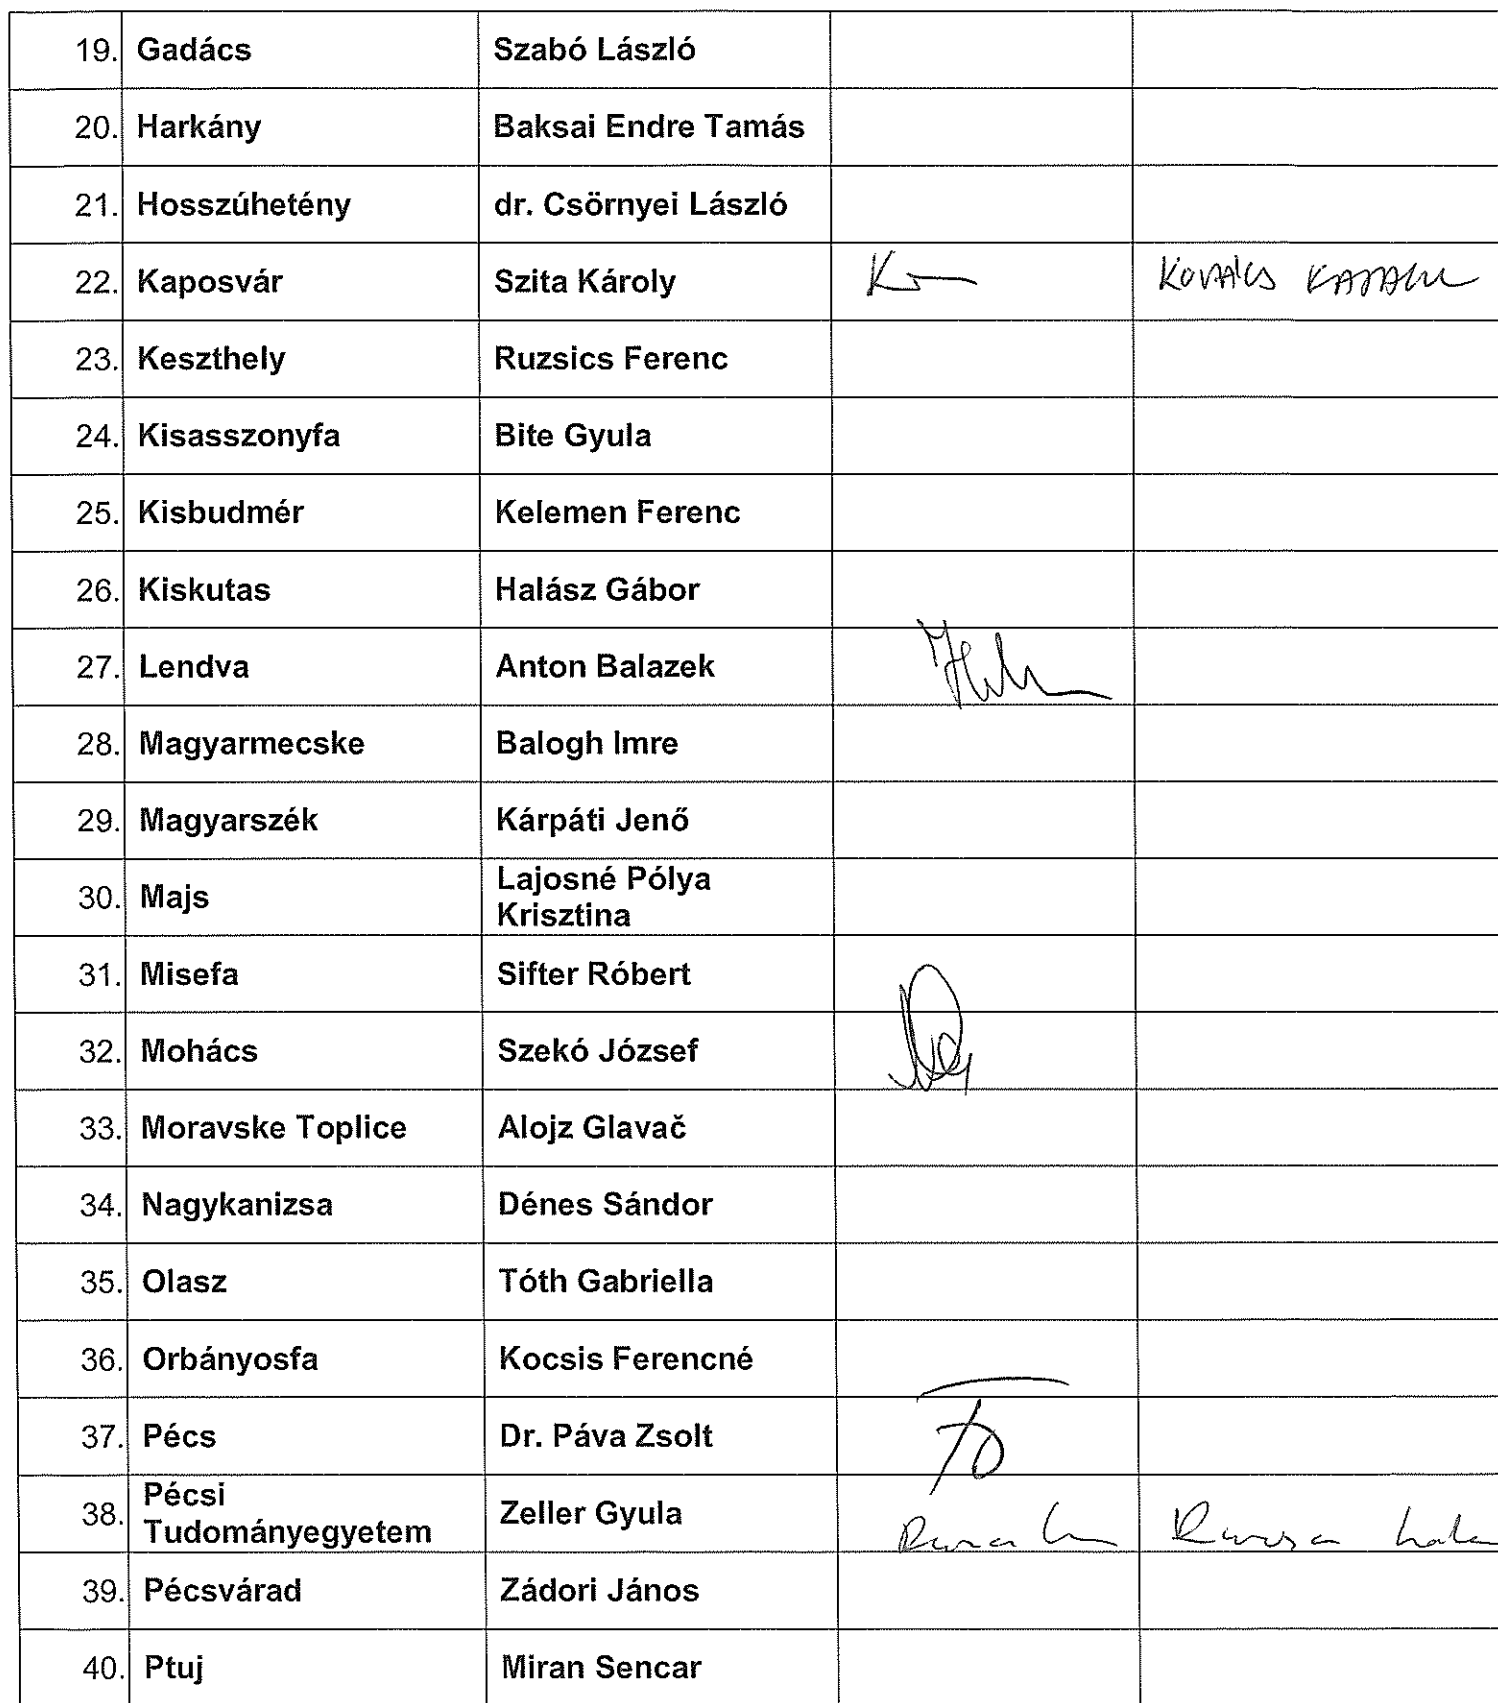 19. Gadács Szabó László
20. Harkány Baksai Endre Tamás
21. Hosszúhetény dr. Csörnyei László
22. Kaposvár Szita Károly KOVÁCS
23. Keszthely Ruzsics Ferenc
24. Kisasszonyfa Bite Gyula
25. Kisbudmér Kelemen Ferenc
26. Kiskutas Halász Gábor
27. Lendva Anton Balazek
28. Magyarmecske Balogh Imre
29. Magyarszék Kárpáti Jenő
30. Majs Lajosné Pólya
Krisztina
31. Misefa Sifter Róbert
32. Mohács Szekó József
33. Moravske Toplice Alojz Glavač
34. Nagykanizsa Dénes Sándor
35. Olasz Tóth Gabriella
36. Orbányosfa Kocsis Ferencné
37. Pécs Dr. Páva Zsolt
38. Pécsi
Tudományegyetem Zeller Gyula
39. Pécsvárad Zádori János
40. Ptuj Miran Sencar